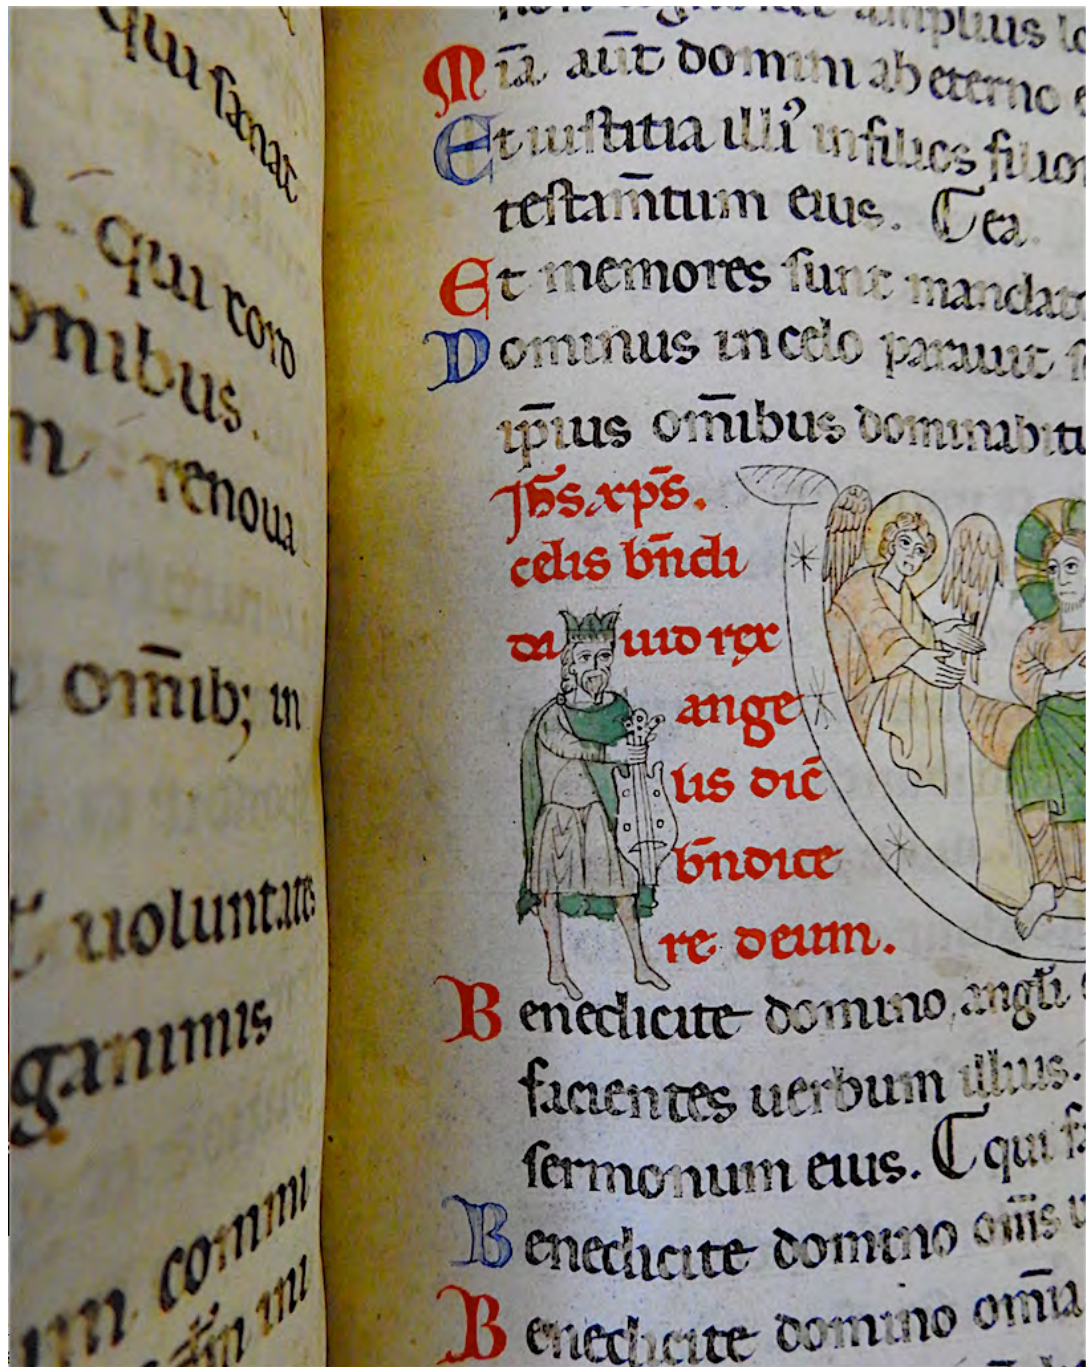 qui sanat
qui coro
onibus.
renoua
omib; in
uoluntates
ganimis
commi
non cognoscet amplius lo
Mīa aūt domini ab eterno e
Et iustitia illiꝰ in filios filior
testam̄tum eius. Tea.
Et memores sunt mandat
Dominus in celo parauit s
ip̄ius om̄ibus dominabitu
Jh̄s xp̄s.
celis bn̄di
dauid rex
ange
lis dic̄
bn̄dice
re deum.
Benedicite domino, angłi
facientes uerbum illius.
sermonum eius. T qui f
Benedicite domino om̄s u
Benedicite domino om̄ia